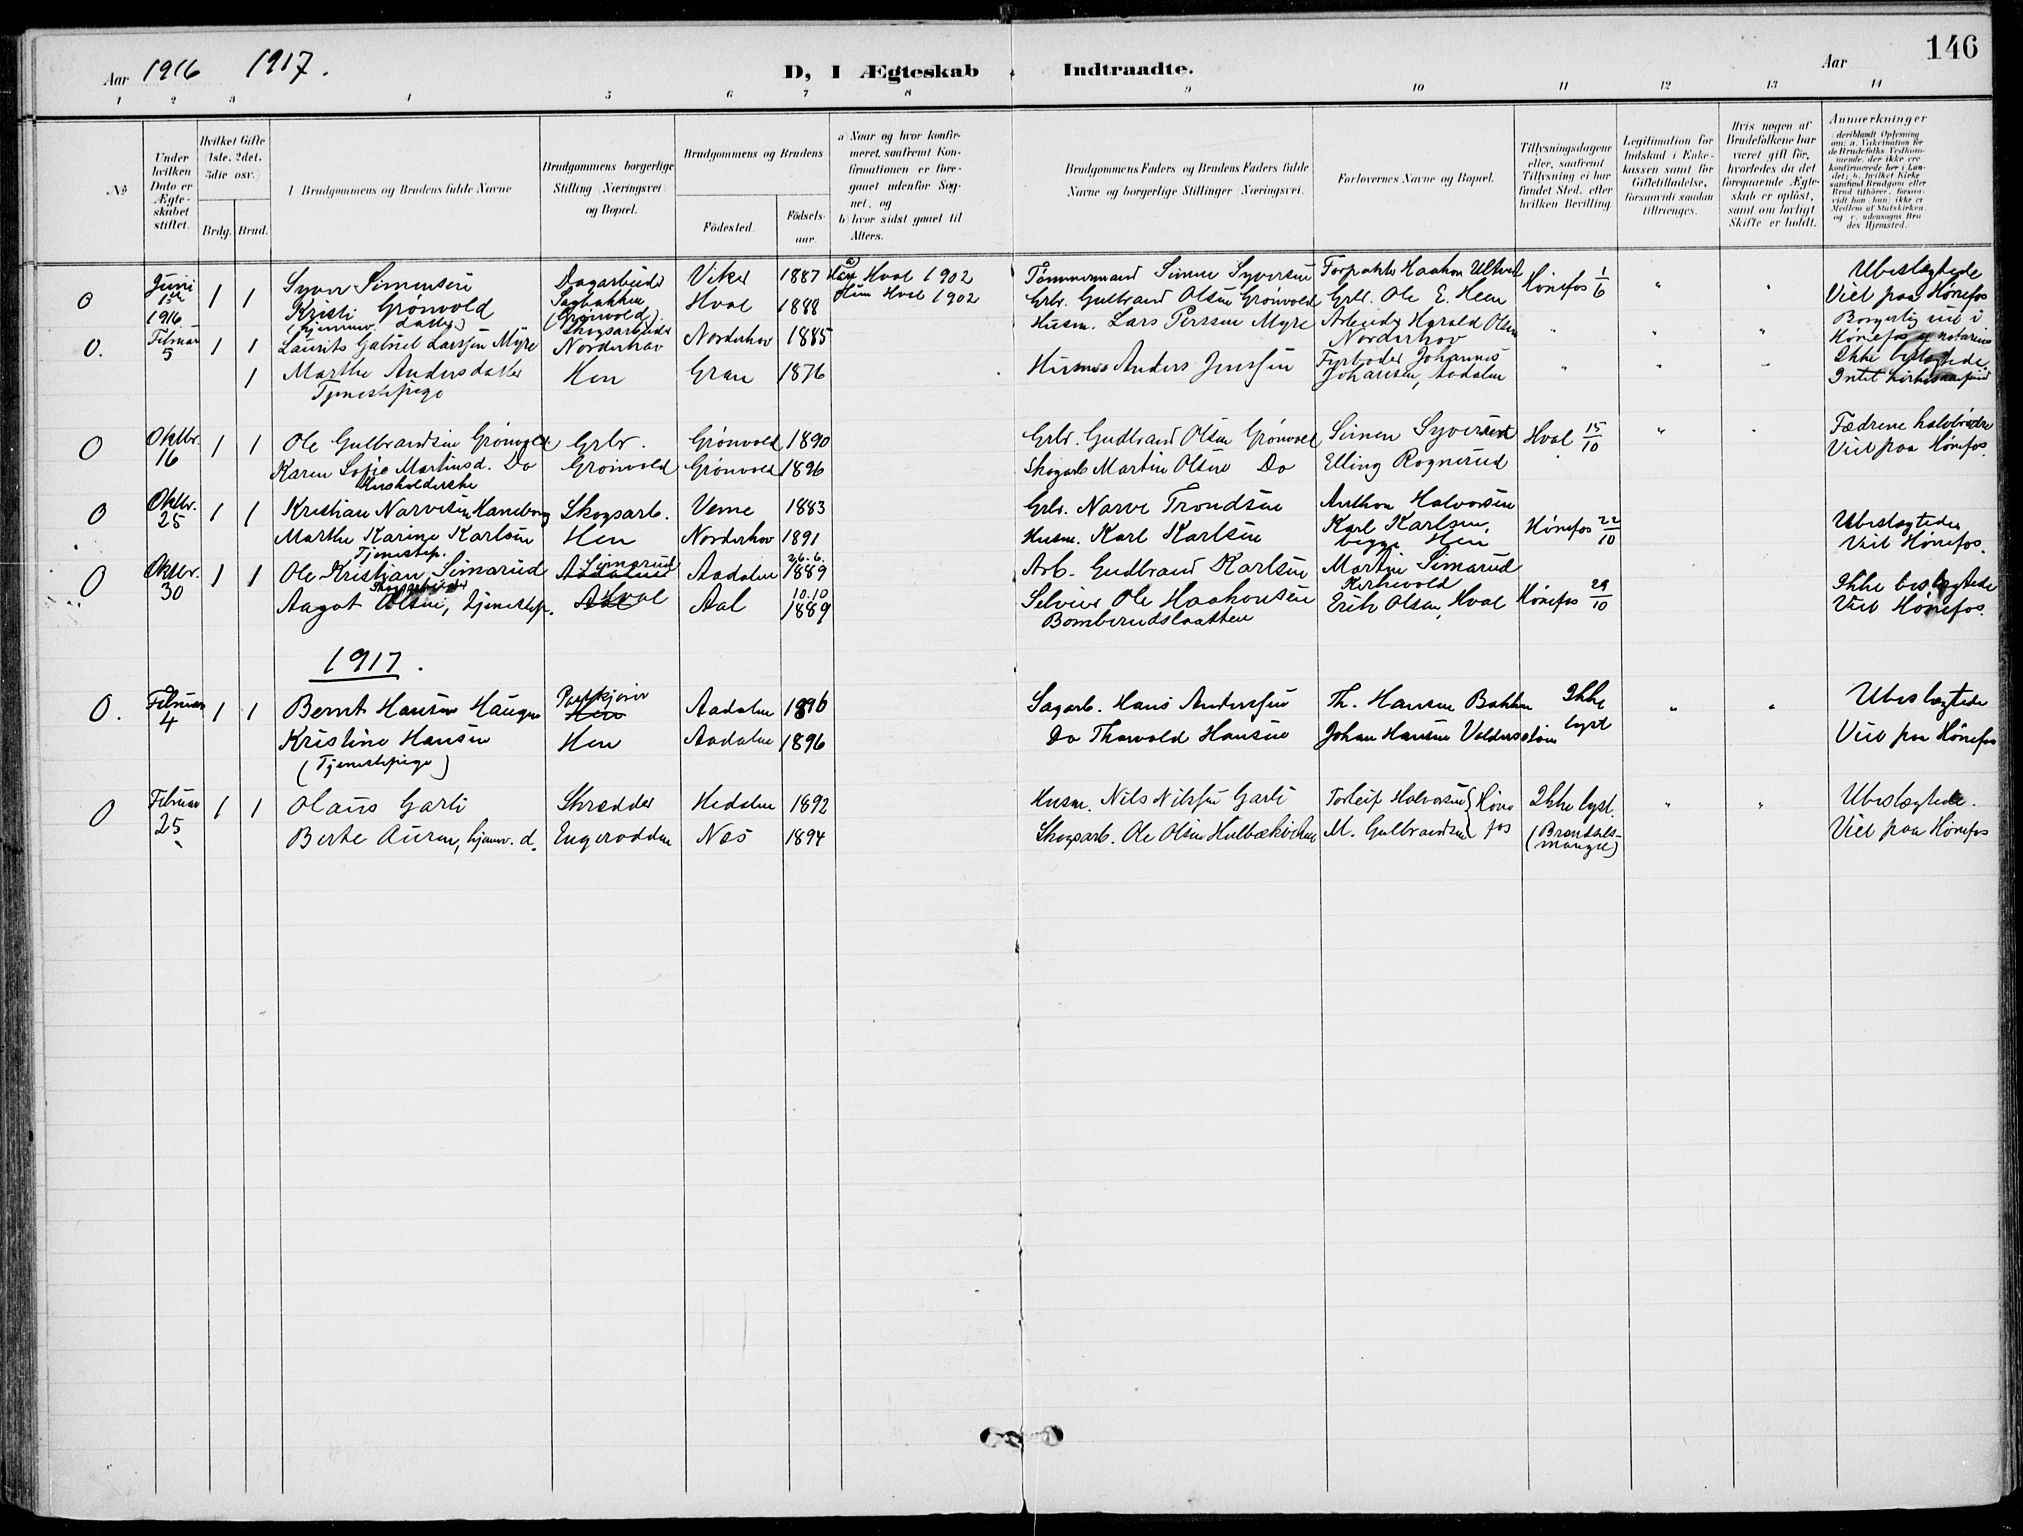 Aar 1916 1917.
D, I Ægteskab Indtraadte.
Aar 146
1 2 3 4 5 6 7 8 9 10 11 12 13 14
No
Under hvilken Dato er Ægteskabet stiftet.
Hvilket Gifte (1ste, 2det, 3die osv.)
Brdg. Brud.
Brudgommens og Brudens fulde Navne
Brudgommens borgerlige Stilling (Næringsvei) og Bopæl.
Brudgommens og Brudens
Födested. Födselsaar.
a) Naar og hvor konfirmeret, saafremt Konfirmationen er foregaaet udenfor Sognet, og
b) hvor sidst gaaet til Alters.
Brudgommens Faders og Brudens Faders fulde Navne og borgerlige Stillinger (Næringsvei).
Forlovernes Navne og Bopæl.
Tillysningsdagene eller, saafremt Tillysning ei har fundet Sted, efter hvilken Bevilling.
Legitimation for Indskud i Enkekassen samt for Giftetilladelse, forsaavidt saadan tiltrænges.
Hvis nogen af Brudefolkene har været gift för, hvorledes da det foregaaende Ægteskab er oplöst, samt om lovligt Skifte er holdt.
Anmerkninger
0 Juni 1ste 1916 1 1 Syver Simensen Dagarbeider Viker 1887 Hval 1902 Tømmermand Simen Syversen Forpakter Haakon Ultved Hønefos 1/6 " " Ubeslægtede
Kristi Grønvold Sagbakken (Grønvold). Hval 1888 Hval 1902 Grbr. Gulbrand Olsen Grønvold Grbr. Ole E. Heen Viet paa Hønefos
(hjemmev. datter)
0. Februar 5 1 1 Laurits Gabriel Larssen Myre Skogsarbeider Norderhov Norderhov 1885 Husm. Lars Perssen Myre Arbeider Harald Olsen Norderhov " " " Borgerlig viet i Hønefos af notarius
1 Marthe Andersdatter Hen Gran 1876 Anders Jenssen Fyrbøder Johannes Johansen, Aadalen " " " Ikke beslægtede.
Tjenestepige Intet kirkesamfund
0 Oktbr. 16 1 1 Ole Gulbrandsen Grønvold Grbr. Grønvold 1890 Grbr. Gudbrand Olsen Grønvold Simen Syversen Hval 15/10 " " Fædrene halvbrødre
Karen Sofie Martinsd. Do Grønvold Grønvold 1896 Skogarb Martin Olsen Do Elling Rognerud Viet paa Hønefos.
Husholderske
0 Oktbr. 25 1 1 Kristian Narvesen Haneborg Skogsarb. Veme 1883 Grbr. Narve Trondsen Anthon Halvorsen
Marthe Karine Karlsen Hen Norderhov 1891 Husm. Karl Karlsen Karl Karlsen, begge Hen Hønefos 22/10 Ubeslægtede
Tjenestep. Viet Hønefos.
0 Oktbr. 30 1 1 Ole Kristian Simarud Simarud Aadalen Aadalen 26.6. 1889 Arb. Gudbrand Karlsen Martin Simarud Kirkevold Ikke beslægtede
Skogsarbeider
Aagot Olsen, tjenestep. Aal Hval Aal 10.10 1889 Selveier Ole Haakonsen Erik Olsen, Hval Hønefos 29/10 Viet Hønefos.
Bomberudslaatten
1917.
0. Februar 4 1 1 Bernt Hansen Haugen Hen Aadalen 1896 Sagarb. Hans Anderssen Th. Hansen Bakken Ikke lyst " " Ubeslægtede
Kristine Hansen Hen Aadalen 1896 Do Thorvald Hansen Johan Hansen Viet paa Hønefos
(Tjenestepige)
0 Februar 25 1 1 Olaus Garli Skrædder Hedalen 1892 Husm. Nils Nilssen Garli Torleif Halvorsen Ikke lyst. " " Ubeslægtede.
Berte Auren, hjemv. d. Engerodden Nes 1894 Skogsarb. Ole Olsen M. Gulbrandsen Hønefos (Brændselsmangel) Viet paa Hønefos